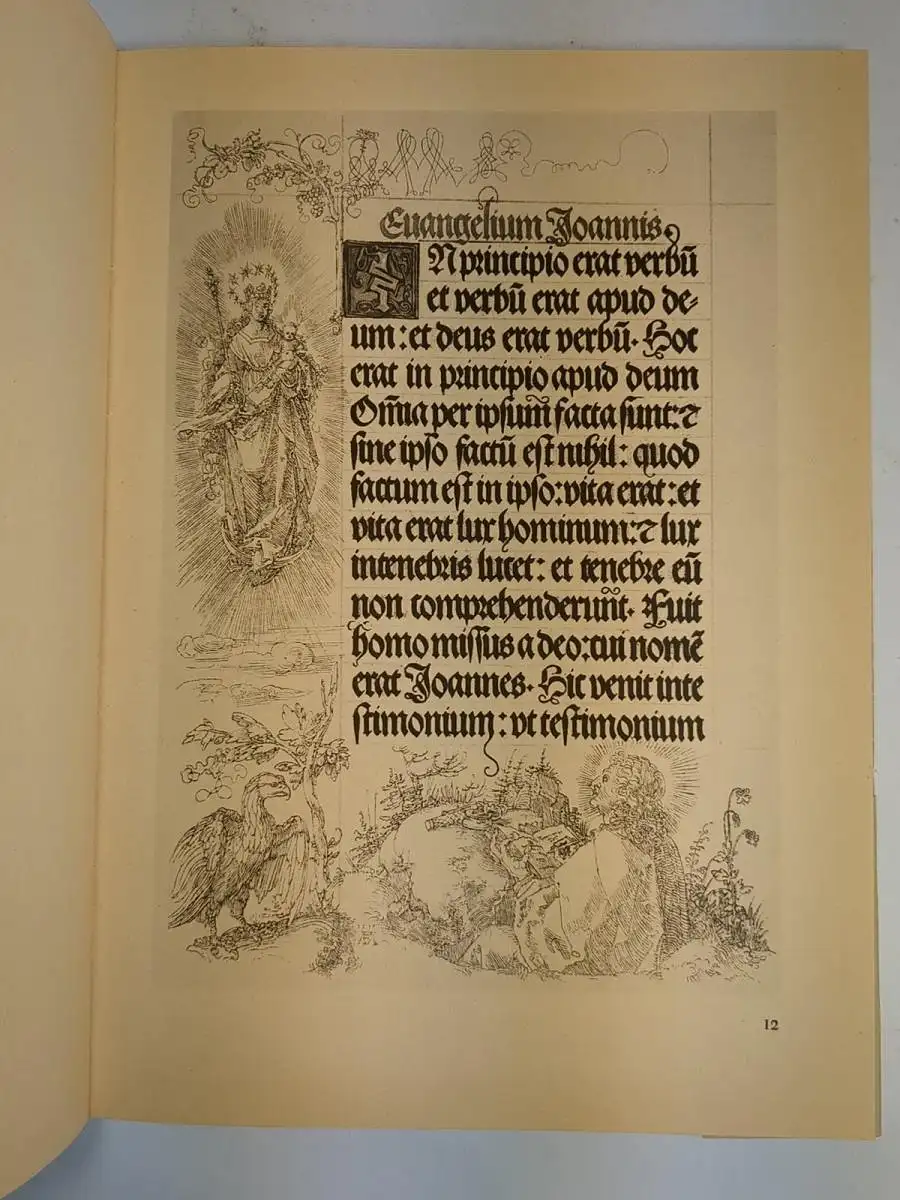 Euangelium Joannis
IN principio erat verbū
et verbū erat apud de-
um: et deus erat verbū. Hoc
erat in principio apud deum
Om̄ia per ipsum̄ facta sunt: ⁊
sine ipso factū est nihil: quod
factum est in ipso: vita erat: et
vita erat lux hominum: ⁊ lux
intenebris lucet: et tenebre eū
non comprehenderun̄t. Fuit
homo missus a deo: cui nomē
erat Joannes. Hic venit inte
stimonium: vt testimonium
12